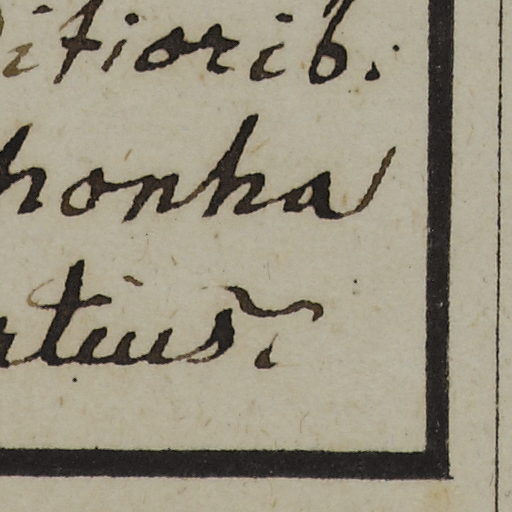 itiorib.
honha
rtius.